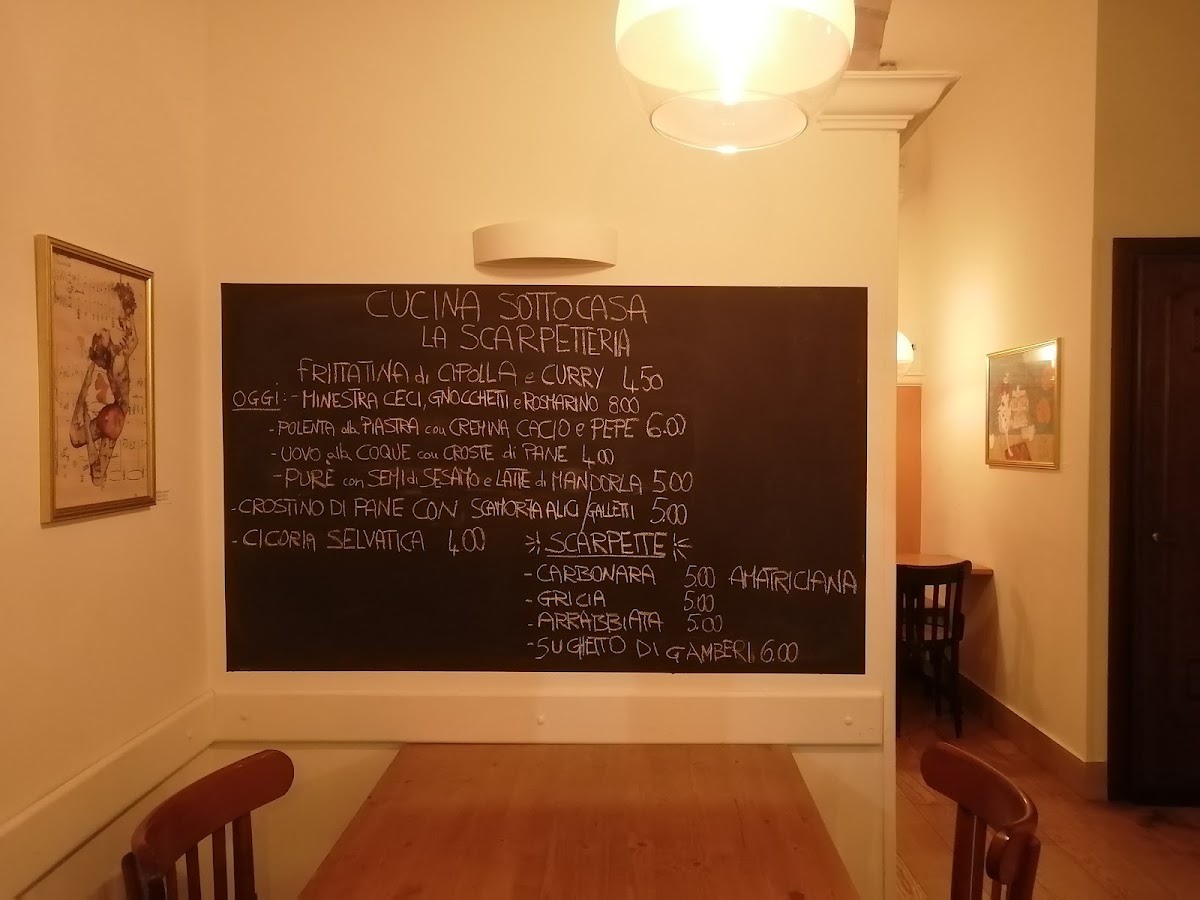 CUCINA SOTTOCASA
LA SCARPETTERIA
FRITTATINA di CIPOLLA e CURRY 4.50
OGGI: - MINESTRA CECI, GNOCCHETTI e ROSMARINO 8.00
- POLENTA alla PIASTRA con CREMINA CACIO e PEPE 6.00
- UOVO alla COQUE con CROSTE di PANE 4.00
- PURÈ con SEMI di SESAMO e LATTE di MANDORLA 5.00
- CROSTINO DI PANE CON SCAMORZA ALICI/GALLETTI 5.00
- CICORIA SELVATICA 4.00
SCARPETTE
- CARBONARA 5.00 AMATRICIANA
- GRICIA 5.00
- ARRABBIATA 5.00
- SUGHETTO DI GAMBERI 6.00